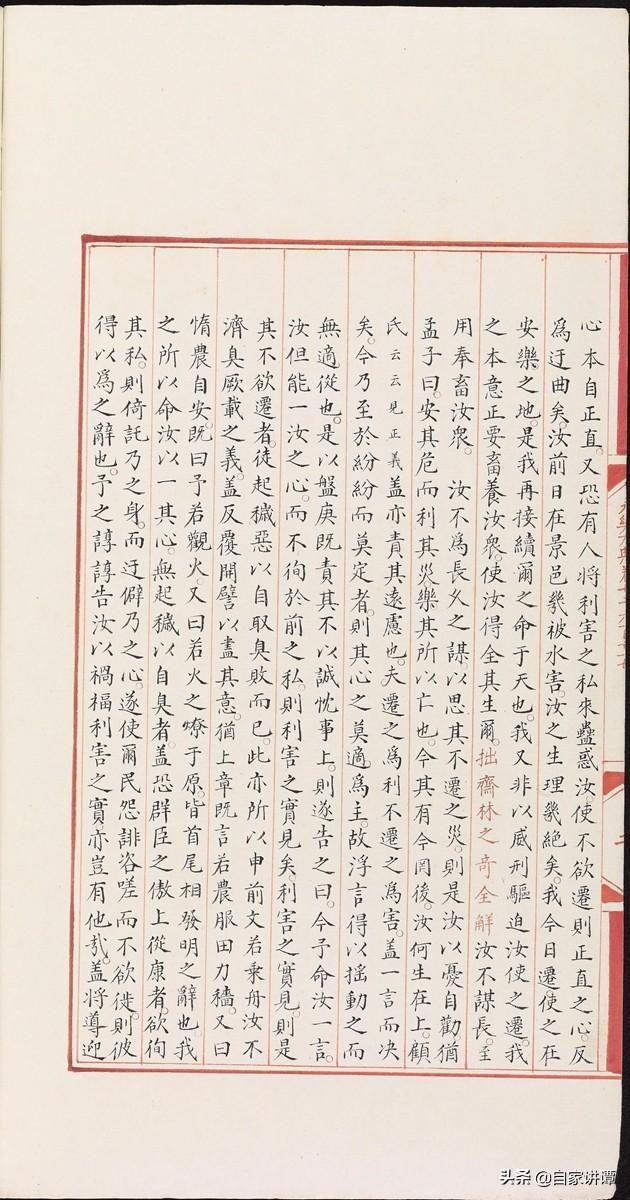 心本自正直。又恐有人將利害之私來蠱惑汝。使不欲遷則正直之心。反
爲迂曲矣。汝前日在景邑幾被水害。汝之生理幾絕矣。我今日遷使之在
安樂之地。是我再接續爾之命于天也。我又非以威刑驅迫汝使之遷。我
之本意正要畜養汝衆。使汝得全其生爾。拙齋林之奇全解汝不謀長。至
用奉畜汝衆。 汝不爲長久之謀。以思其不遷之災。則是汝以憂自勸猶
孟子曰。安其危而利其災樂其所以亡也。今其有今罔後。汝何生在上。顧
氏云云見正義蓋亦責其遠慮也。夫遷之爲利不遷之爲害。蓋一言而决
矣。今乃至於紛紛而莫定者。則其心之莫適爲主。故浮言得以揺動之而
無適從也。是以盤庚既責其不以誠忱事上。則遂告之曰。今予命汝一言。
汝但能一汝之心。而不徇於前之私。則利害之實見矣。利害之實見。則是
其不欲遷者。徒起穢惡以自取臭敗而已。此亦所以申前文若乗舟汝不
濟臭厥載之義。蓋反覆開譬以盡其意。猶上章既言若農服田力穡。又曰
惰農自安。既曰予若觀火。又曰若火之燎于原。皆首尾相發明之辭也。我
之所以命汝以一其心。無起穢以自臭者。蓋恐群臣之傲上從康者。欲徇
其私。則倚託乃之身。而迂僻乃之心。遂使爾民怨誹咨嗟而不欲徙。則彼
得以爲之辭也。予之諄諄告汝以禍福利害之實亦豈有他㢤。蓋將導迎
头条 @自家讲谭